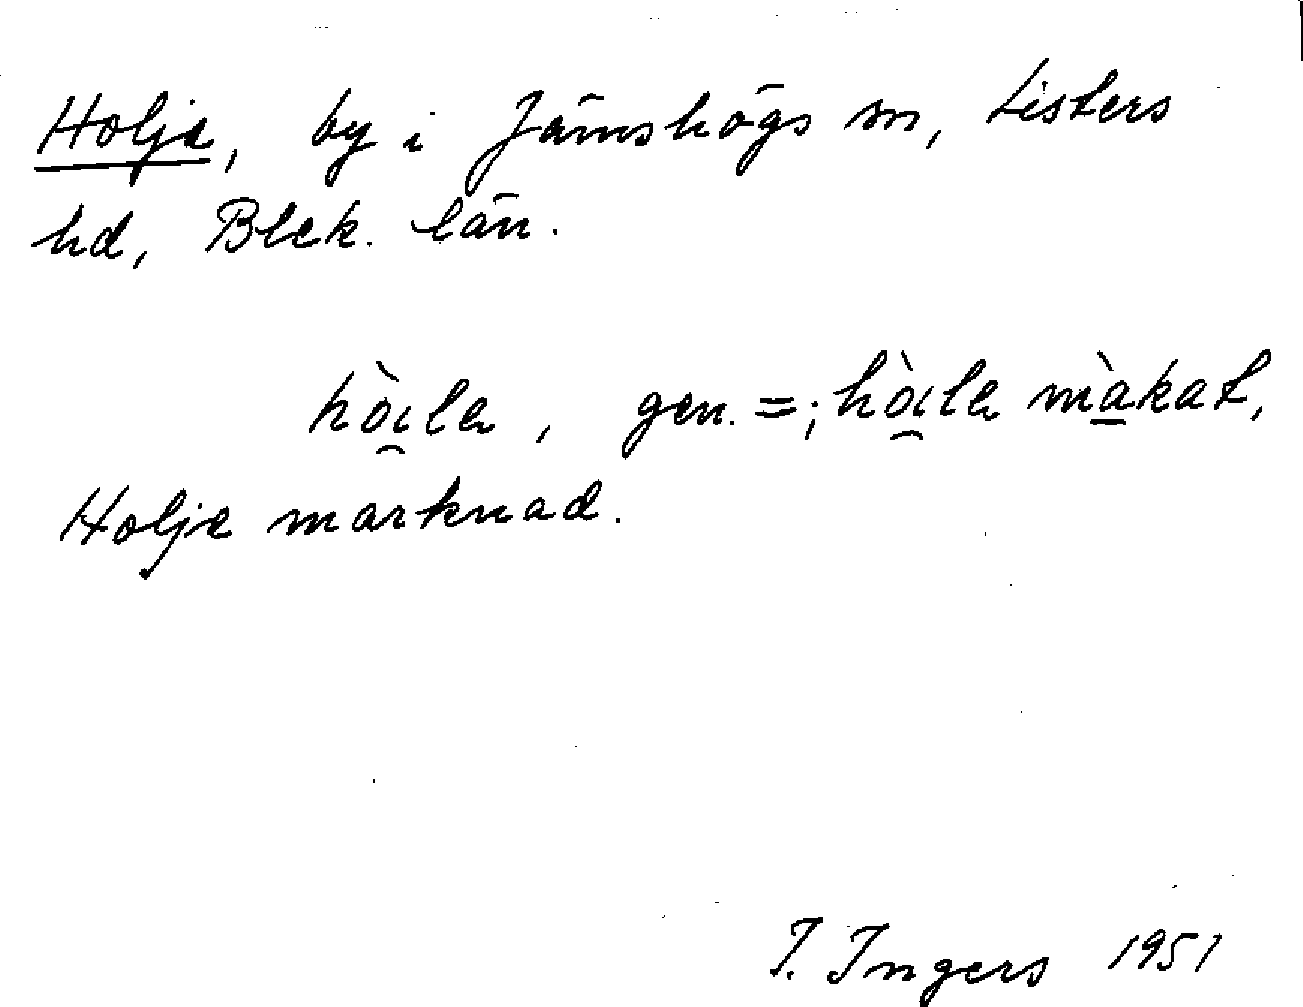 Holje, by i Jämshögs sn, Listers
hd, Blek. län.
gen. =;
Holje marknad.
I. Ingers 1951